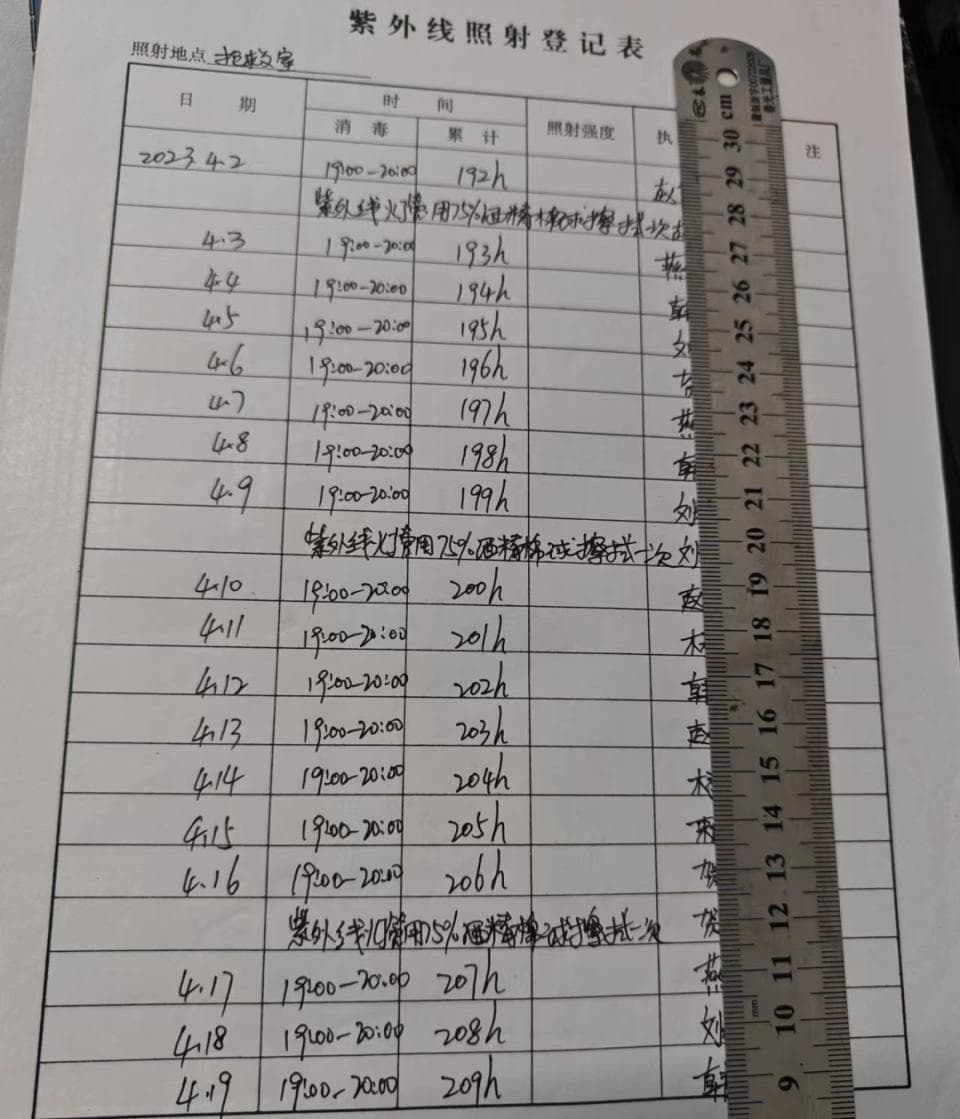 紫外线照射登记表
照射地点 抢救室
日期 时间 照射强度 执 注
消毒 累计
2023.4.2 19:00-20:00 192h 赵
紫外线灯管用75%酒精棉球擦拭一次
4.3 19:00-20:00 193h 燕
4.4 19:00-20:00 194h 韩
4.5 19:00-20:00 195h 刘
4.6 19:00-20:00 196h
4.7 19:00-20:00 197h 燕
4.8 19:00-20:00 198h 韩
4.9 19:00-20:00 199h 刘
紫外线灯管用75%酒精棉球擦拭一次 刘
4.10 19:00-20:00 200h 赵
4.11 19:00-20:00 201h
4.12 19:00-20:00 202h 韩
4.13 19:00-20:00 203h 赵
4.14 19:00-20:00 204h
4.15 19:00-20:00 205h
4.16 19:00-20:00 206h 贺
紫外线灯管用75%酒精棉球擦拭一次 贺
4.17 19:00-20:00 207h 燕
4.18 19:00-20:00 208h 刘
4.19 19:00-20:00 209h 韩
cm 30 29 28 27 26 25 24 23 22 21 20 19 18 17 16 15 14 13 12 11 10 9
mm